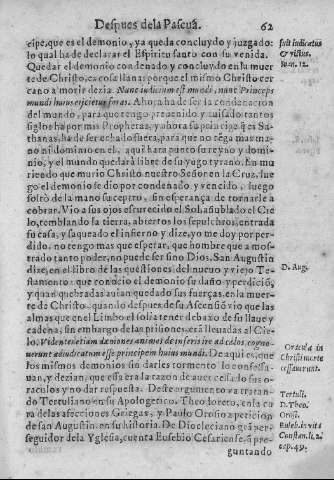 Despues dela Pascua.
62
cipe, que es el demonio, ya queda concluydo y juzgado:
lo qual ha de declarar el Espiritu santo con su venida.
Quedar el demonio condenado y concluydo en la muer
te de Christo, es cosa llana: porque el mismo Christo cer
cano a morir dezia. Nunc iudicium est mundi, nunc Princeps
mundi huius eijcietur foras. Ahora ha de ser la condenacion
del mundo, para que tengo preuenido y auisado tantos
siglos ha por mis Prophetas, y ahora su principe q̃ es Sa-
thanas, ha de ser echado fuera, para que no tẽga mas ma-
no ni dominio en el. aqui hara punto su reyno y domi-
nio, y el mundo quedarà libre de su yugo tyrano. En mu
riendo que murio Christo nuestro Señor en la Cruz, lue
go el demonio se dio por condenado y vencido, luego
soltò de la mano su ceptro, sin esperança de tornarle a
cobrar. Vio a sus ojos escurecido el Sol, añublado el Cie
lo, temblando la tierra, abiertos los sepulchros, entrada
su casa, y saqueado el infierno y dize, yo me doy por per-
dido, no tengo mas que esperar, que hombre que a mos-
trado tanto poder, no puede ser sino Dios. San Augustin
dize, en el libro de las questiones del nueuo y viejo Te-
stamento: que conocio el demonio su daño y perdiciõ,
y quan quebradas auian quedado sus fuerças, en la muer
te de Christo, quando despues de su Ascensiõ vio que las
almas que en el Limbo el solia tener debaxo de su llaue y
cadena, sin embargo de las prisiones, erã lleuadas al Cie-
lo.
esse principem huius mundi. De aqui es, que
los mismos demonios sin darles tormento lo confessa-
uan, y dezian, que essa era la razon de auer cessado sus o-
raculos y no dar respuesta. Deste argumento va tratan-
do Tertuliano en su Apologetico. Theodoreto, en la cu
ra de las afecciones Griegas, y Paulo Orosio a peticion
de san Augustin, en su historia. De Diocleciano grã per-
seguidor dela Yglesia, cuenta Eusebio Cesariense, q̃ pre-
guntando
Ioan. 12.
D. Aug.
Oracula in
Christi morte
cessauerunt.
Tertuli.
D. Theo.
Orosi.
Euseb. in vita
Constan. li. 2.
cap. 49.